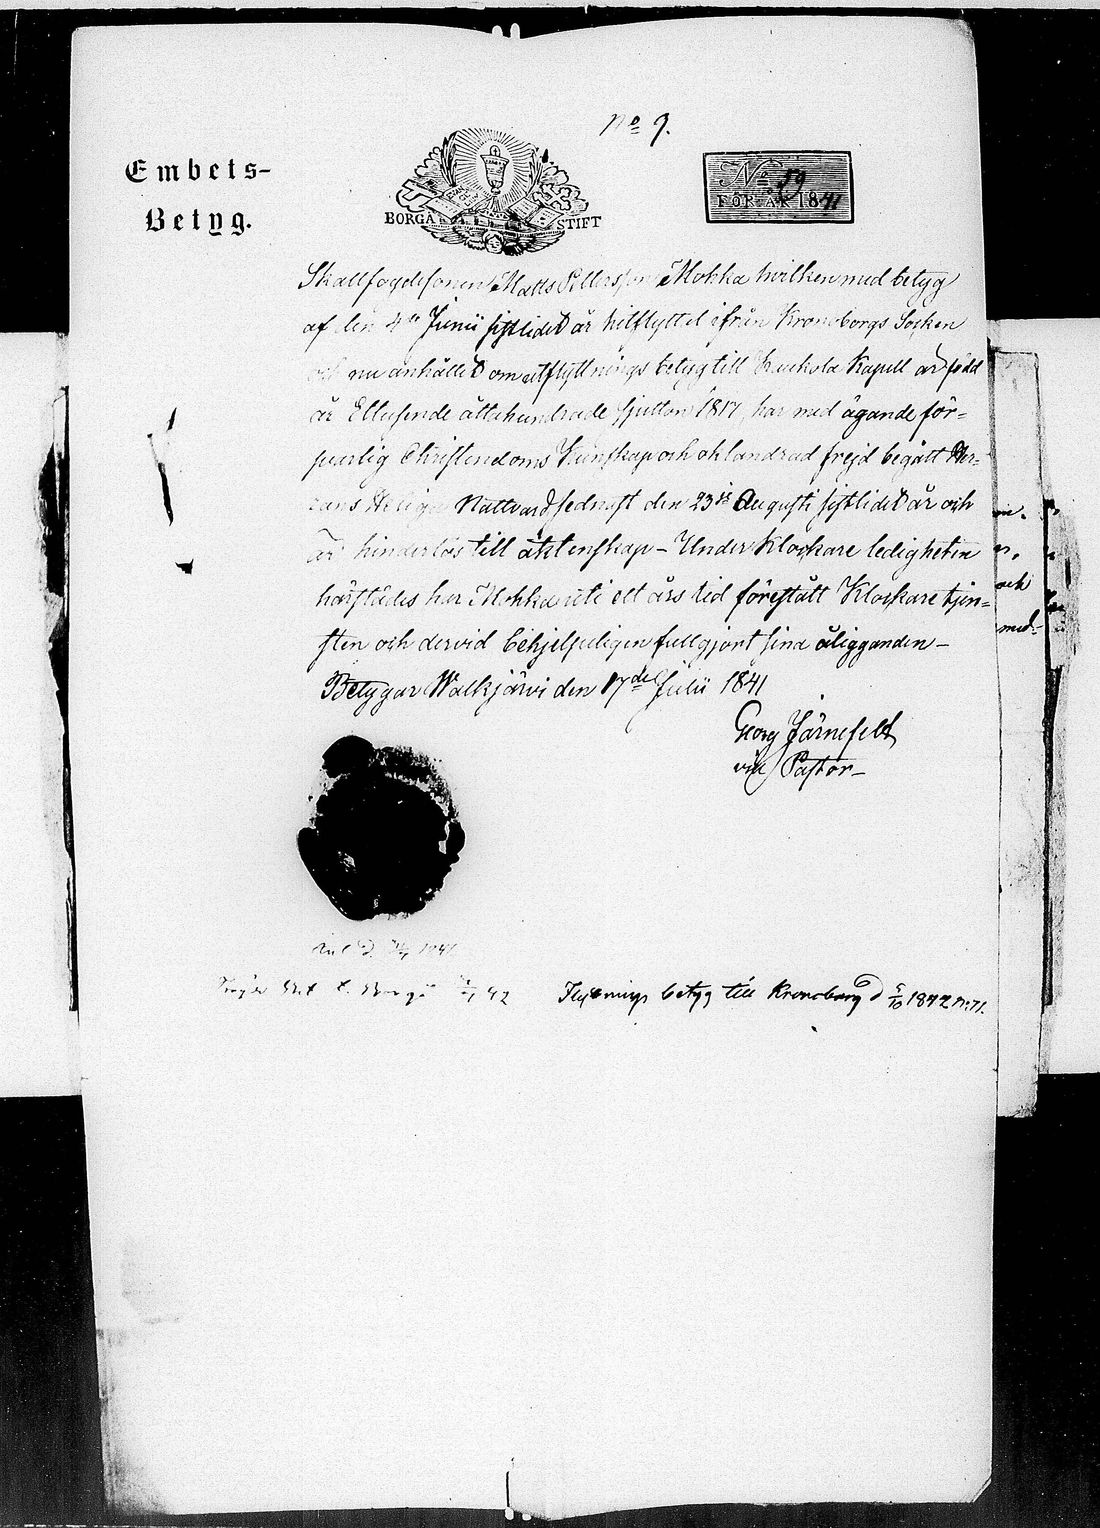 No 9.
Embets-
Betyg.
BORGÅ STIFT
No 59
FÖR ÅR 1841
Skallfogdesonen Matts Pettersson Mokka hvilken med betyg
af den 4de Junii sistlidet år hitflyttat ifrån Kronoborgs Socken
och nu anhållet om utflyttnings betyg till Kapell är född
år Ettusende åttahundrade sjutton 1817, har med ägande för-
svarlig Christendoms Kunskap och oklandrad frejd begått Her-
rans Heliga Nattvard sednast den 23de Augusti sistlidet år och
är hinderlös till äktenskap - Under Klockare ledigheten
härstädes har Mokka uti ett års tid förestått Klockare tjen-
sten och dervid behjelpeligen fullgjort sina åligganden -
Betygar Walkjärvi den 17de Julii 1841
Georg Järnefelt
vice Pastor -
1841
42
Flyttnings betyg till Kronoborg d 5/10 1842 N:71.
och
med-